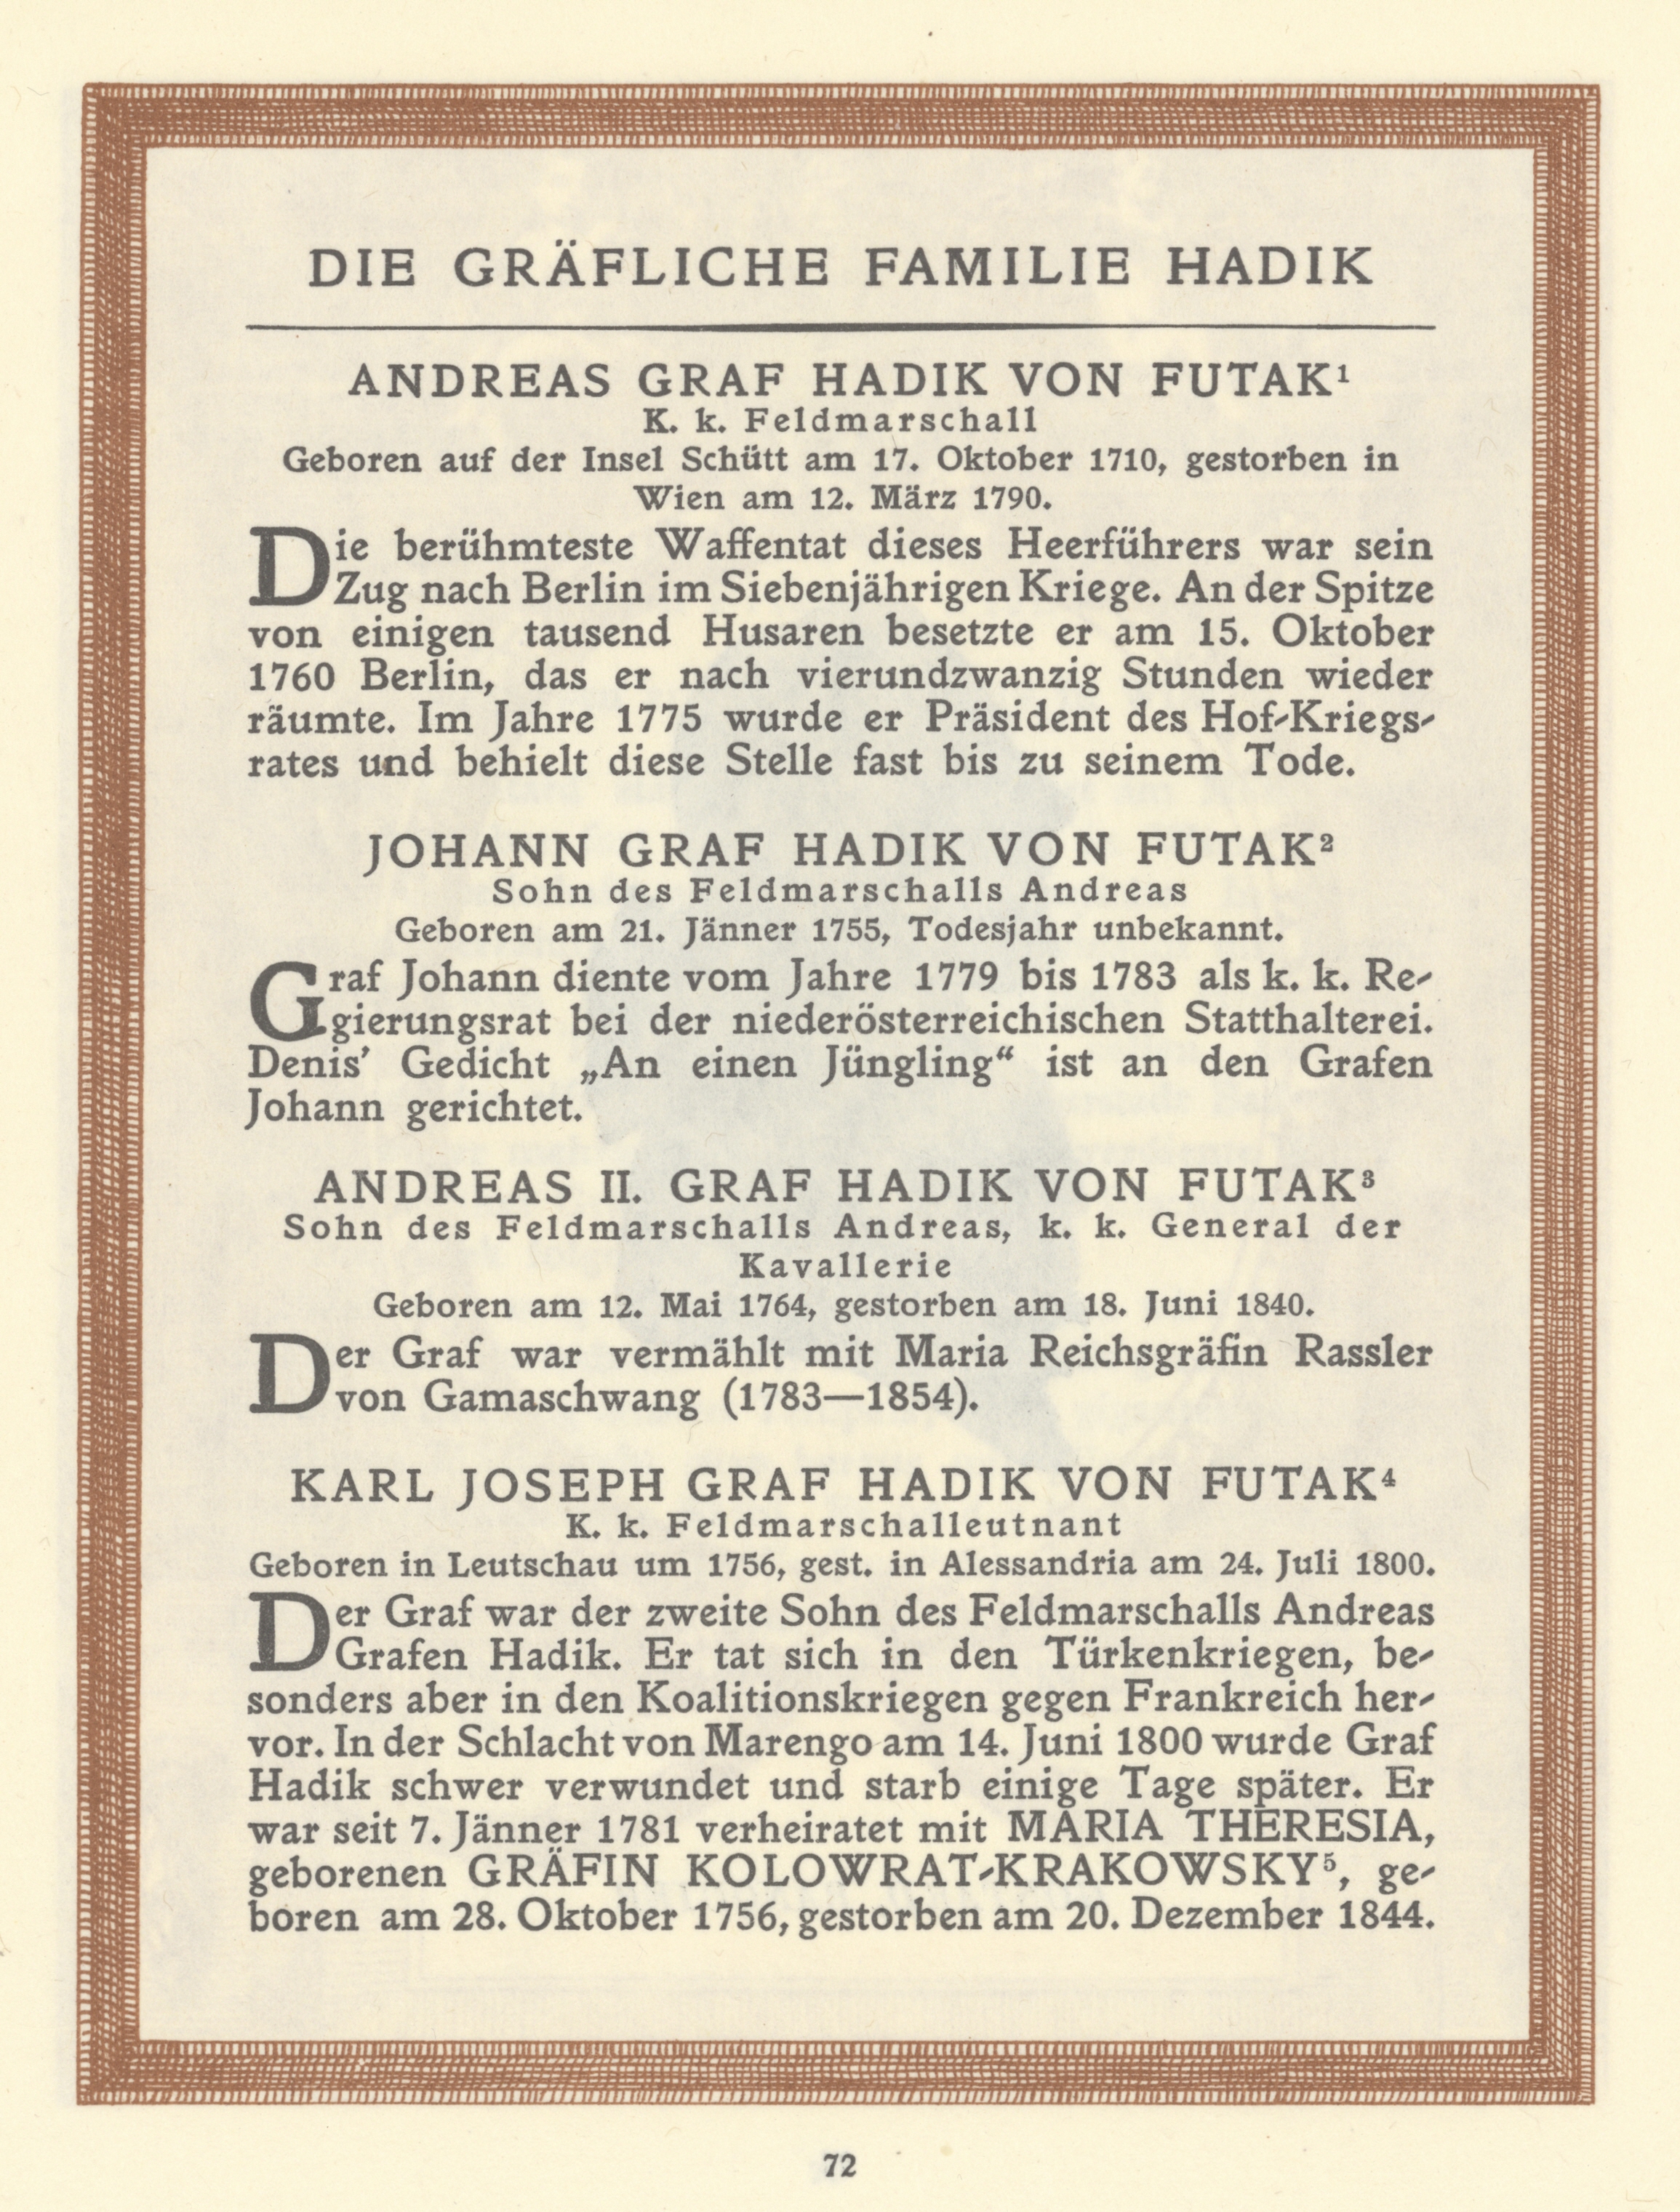 DIE GRÄFLICHE FAMILIE HADIK
ANDREAS GRAF HADIK VON FUTAK¹
K. k. Feldmarschall
Geboren auf der Insel Schütt am 17. Oktober 1710, gestorben in
Wien am 12. März 1790.
Die berühmteste Waffentat dieses Heerführers war sein
Zug nach Berlin im Siebenjährigen Kriege. An der Spitze
von einigen tausend Husaren besetzte er am 15. Oktober
1760 Berlin, das er nach vierundzwanzig Stunden wieder
räumte. Im Jahre 1775 wurde er Präsident des Hof-Kriegs-
rates und behielt diese Stelle fast bis zu seinem Tode.
JOHANN GRAF HADIK VON FUTAK²
Sohn des Feldmarschalls Andreas
Geboren am 21. Jänner 1755, Todesjahr unbekannt.
Graf Johann diente vom Jahre 1779 bis 1783 als k. k. Re-
gierungsrat bei der niederösterreichischen Statthalterei.
Denis’ Gedicht „An einen Jüngling“ ist an den Grafen
Johann gerichtet.
ANDREAS II. GRAF HADIK VON FUTAK³
Sohn des Feldmarschalls Andreas, k. k. General der
Kavallerie
Geboren am 12. Mai 1764, gestorben am 18. Juni 1840.
Der Graf war vermählt mit Maria Reichsgräfin Rassler
von Gamaschwang (1783—1854).
KARL JOSEPH GRAF HADIK VON FUTAK⁴
K. k. Feldmarschalleutnant
Geboren in Leutschau um 1756, gest. in Alessandria am 24. Juli 1800.
Der Graf war der zweite Sohn des Feldmarschalls Andreas
Grafen Hadik. Er tat sich in den Türkenkriegen, be-
sonders aber in den Koalitionskriegen gegen Frankreich her-
vor. In der Schlacht von Marengo am 14. Juni 1800 wurde Graf
Hadik schwer verwundet und starb einige Tage später. Er
war seit 7. Jänner 1781 verheiratet mit MARIA THERESIA,
geborenen GRÄFIN KOLOWRAT-KRAKOWSKY⁵, ge-
boren am 28. Oktober 1756, gestorben am 20. Dezember 1844.
72